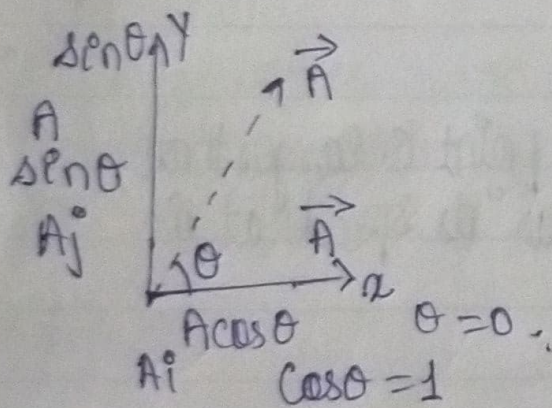 sinθ Y
A⃗
A
sinθ
Aj
θ
A⃗
x
Acosθ
θ = 0.
Ai
Cosθ = 1